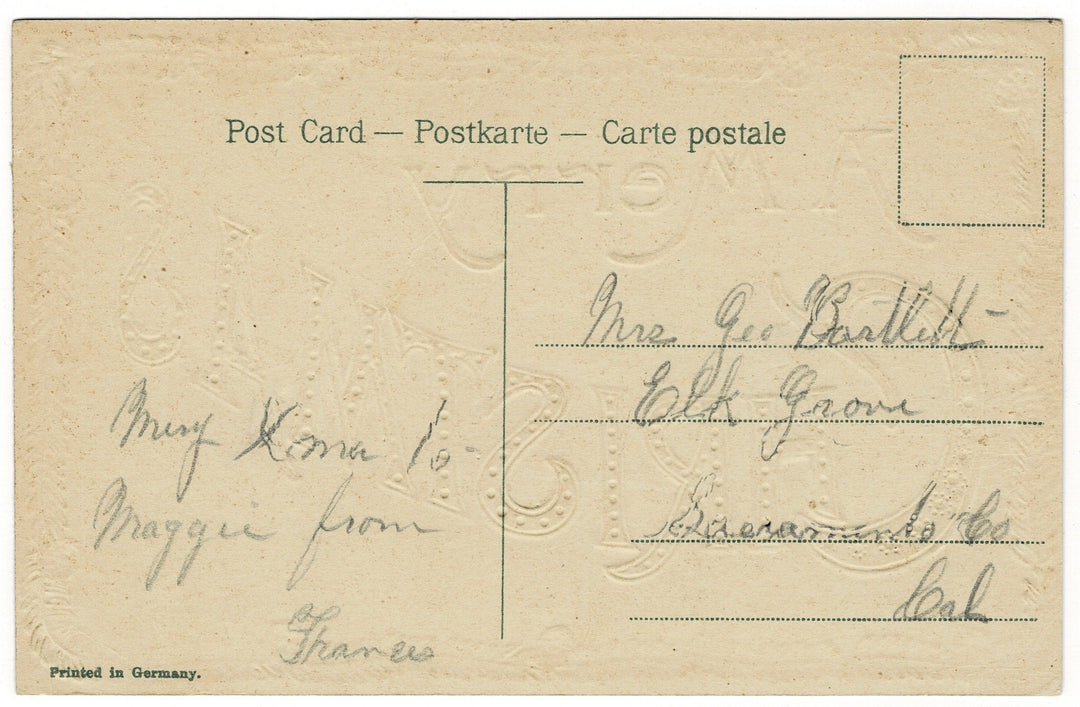 Post Card — Postkarte — Carte postale
Mrs Geo Bartlett
Elk Grove
Sacramento Co
Cal
Mery Xmas to
Maggie from
Frances
Printed in Germany.